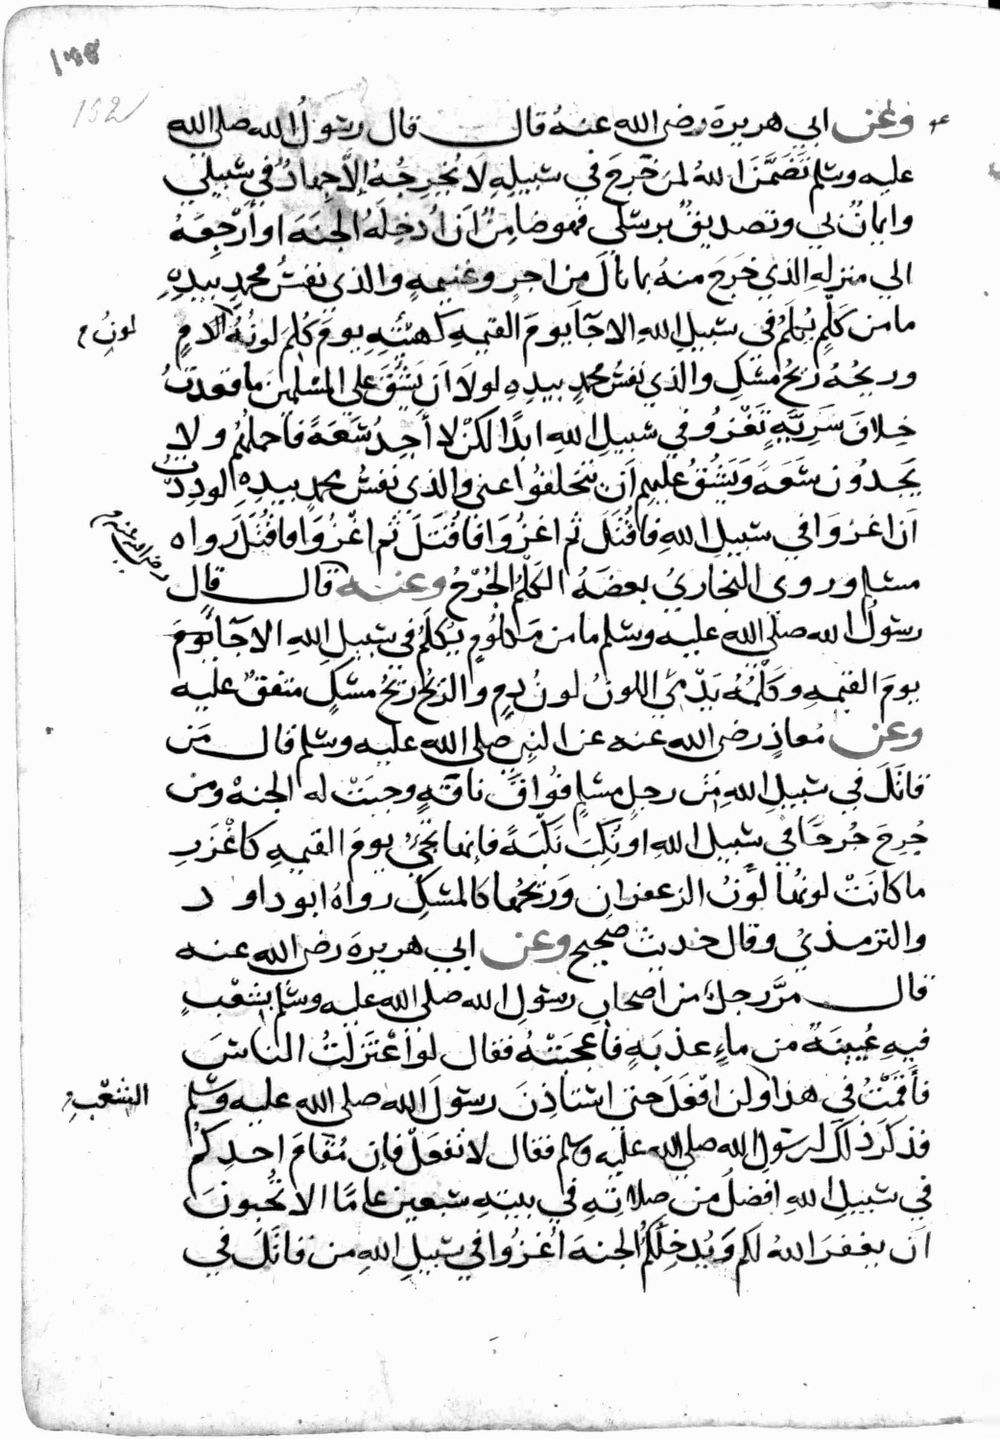 152
وعن ابي هريرة رضي الله عنه قال قال رسول الله صلى الله
عليه وسلم تَضَمَّنَ اللهُ لمن خَرَجَ في سبيلِهِ لا يُخرِجُهُ إلاَّ جِهادٌ في سبيلي
وايمانٌ بي وتصديقٌ برسُلي فهو ضامِنٌ اَن اُدخِلَهُ الجنةَ او أَرْجِعَهُ
الي منزلِهِ الذي خَرَجَ منهُ بما نالَ من اجرٍ وغنيمةٍ والذي نفسُ محمدٍ بيدِهِ
ما من كَلْمٍ يُكلَمُ في سبيلِ اللهِ الا جَآ يومَ القيمةِ كهيئتِهِ يومَ كُلِمَ لونُهُ الدمِ
لونُ م
وريحُهُ ريحُ مسكٍ والذي نفسُ محمدٍ بيدِهِ لولا اَن يَشُقَّ علي المسلمينَ ما قعدتُ
خِلافَ سَرِيَّةٍ تَغْزُو في سبيلِ اللهِ ابدًا لكنْ لا أَجِدُ سَعَةً فاحملُهُم ولا
يَجدُون سَعَةً وَيَشُقُّ عليهم اَن يتخلفُوا عني والذي نفسُ محمدٍ بيدِهِ لودِدْتُ
اَن اغزوَ في سبيلِ اللهِ فاُقْتَلَ ثم اغزُوَ فاُقتَلَ ثم اغْزُوَ فاُقتَلَ رواه
مسلم وروى البخاريُ بعضَهُ الكَلْمُ الجُرْحُ وعنه قال قال
رضي الله عنه م
رسولُ الله صلى الله عليه وسلم ما من مَكلُومٍ يُكلَمُ في سبيلِ اللهِ الا جَآ يومَ
يومَ القيمةِ وكَلْمُهُ يَدْمَي اللونُ لونُ دمٍ والريحُ ريحُ مسكٍ متفقٌ عليه
وعن مُعاذٍ رضي الله عنه عن النبي صلى الله عليه وسلم قال مَن
قاتَلَ في سبيلِ اللهِ من رجلٍ مسلمٍ فُواقَ ناقةٍ وجبَتْ له الجنةُ ومن
جُرِحَ جُرحًا في سبيل الله او نُكِبَ نَكْبَةً فانها تجيُ يومَ القيمةِ كاَغْزَرِ
ما كانَتْ لونُها لَونُ الزعفرانِ وَريحُها كالمسكِ رواهُ ابو داود
والترمذيُ وقال حديث صحيح وعن ابي هريرةَ رضي الله عنه
قال مرَّ رجلٌ من اصحابِ رسول الله صلى الله عليه وسلم بشِعْبٍ
فيهِ عُيَيْنَةٌ من ماءٍ عذبةٍ فاَعجبَتْهُ فقال لو اعْتَزَلتُ الناسَ
فأَقمتُ في هذا ولن افعَلَ حتى استاذِنَ رسولَ الله صلى الله عليه وسلم
الشِعْبِ م
فذكرَ ذلك لرسولِ الله صلى الله عليه وسلم فقال لا تفعَلْ فاِن مُقامَ احدِكُم
في سبيلِ اللهِ افضلُ من صلاتِهِ في بيتِهِ سبعين عامًا الا تُحبونَ
اَن يغفرَ اللهُ لكم وَيُدخِلَكُم الجنةَ اُغزُوا في سبيلِ اللهِ من قاتَلَ في